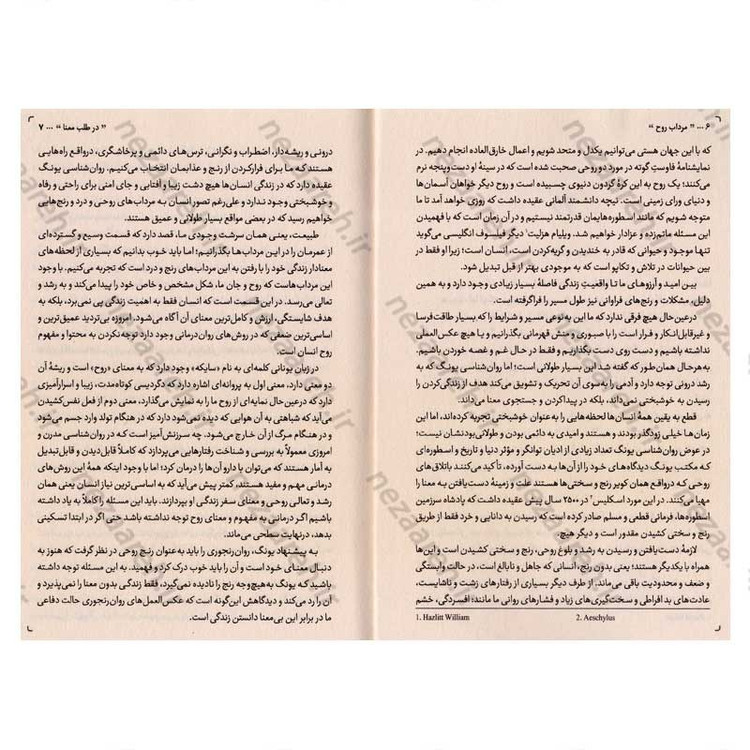 ۶ ... “ مرداب روح ”
که با این جهان هستی می‌توانیم یکدل و متحد شویم و اعمال خارق‌العاده انجام دهیم. در
نمایشنامهٔ فاوستِ گوته در مورد دو روحی صحبت شده است که در سینهٔ او دست‌وپنجه نرم
می‌کنند؛ یک روح به این کرهٔ گردون دنیوی چسبیده است و روح دیگر خواهان آسمان‌ها
و دنیای ورای زمینی است. نیچه دانشمند آلمانی عقیده داشت که روزی خواهد آمد تا ما
متوجه شویم که مانند اسطوره‌هایمان قدرتمند نیستیم و در آن زمان است که با فهمیدن
این مسئله ماتم‌زده و عزادار خواهیم شد. ویلیام هزلیت۱ دیگر فیلسوف انگلیسی می‌گوید
تنها موجود و حیوانی که قادر به خندیدن و گریه‌کردن است، انسان است؛ زیرا او فقط در
بین حیوانات در تلاش و تکاپو است که به موجودی بهتر از قبل تبدیل شود.
بین امید و آرزوهای ما تا واقعیتِ زندگی فاصلهٔ بسیار زیادی وجود دارد و به همین
دلیل، مشکلات و رنج‌های فراوانی نیز طول مسیر را فراگرفته است.
درعین‌حال هیچ فرقی ندارد که ما این به‌نوعی مسیر و شرایط را که بسیار طاقت‌فرسا
و غیرقابل‌انکار و فرار است را با صبوری و منش قهرمانی بگذرانیم و یا هیچ عکس‌العملی
نداشته باشیم و دست روی دست بگذاریم و فقط در حال غم و غصه خوردن باشیم.
به‌هرحال همان‌طور که گفته شد این بسیار طولانی است؛ اما روان‌شناسی یونگ که به
رشد درونی توجه دارد و آدمی را به‌سوی آن تحریک و تشویق می‌کند هدف از زندگی‌کردن را
رسیدن به خوشبختی نمی‌داند، بلکه در پیداکردن و جستجوی معنا می‌داند.
قطع به یقین همهٔ انسان‌ها لحظه‌هایی را به‌عنوان خوشبختی تجربه کرده‌اند، اما این
زمان‌ها خیلی زودگذر بودند و هستند و امیدی به دائمی بودن و طولانی‌بودنشان نیست؛
در عوض روان‌شناسی یونگ تعداد زیادی از ادیان توانگر و مؤثر دنیا و تاریخ و اسطوره‌ای
که مکتب یونگ دیدگاه‌های خود را از آن‌ها به دست آورده، تأکید می‌کنند باتلاق‌های
روحی که درواقع همان کویر رنج و سختی‌ها هستند علت و زمینهٔ دست‌یافتن به معنا را
مهیا می‌کنند. در این مورد اسکلیس۲ در ۲۵۰۰ سال پیش عقیده داشت که پادشاه سرزمین
اسطوره‌ها، فرمانی قطعی و مسلم صادر کرده است که رسیدن به دانایی و خرد فقط از طریق
رنج و سختی کشیدن مقدور است و دیگر هیچ.
لازمهٔ دست‌یافتن و رسیدن به رشد و بلوغ روحی، رنج و سختی کشیدن است و این‌ها
همراه با یکدیگر هستند؛ یعنی بدون رنج، انسانی که جاهل و نابالغ است، در حالت وابستگی
و ضعف و محدودیت باقی می‌ماند. از طرف دیگر بسیاری از رفتارهای زشت و ناشایست،
عادت‌های بد افراطی و سخت‌گیری‌های زیاد و فشارهای روانی ما مانند؛ افسردگی، خشم
1. Hazlitt William
2. Aeschylus
“ در طلب معنا ” ... ۷
درونی و ریشه‌دار، اضطراب و نگرانی، ترس‌های دائمی و پرخاشگری، درواقع راه‌هایی
هستند که ما برای فرارکردن از رنج و عذابمان انتخاب می‌کنیم. روان‌شناسی یونگ
عقیده دارد که در زندگی انسان‌ها هیچ دشت زیبا و آفتابی و جای امنی برای راحتی و رفاه
و خوشبختی وجود ندارد و علی‌رغم تصور انسان به مرداب‌های روحی و درد و رنج‌هایی
خواهیم رسید که در بعضی مواقع بسیار طولانی و عمیق هستند.
طبیعت، یعنی همان سرشت وجودی ما، قصد دارد که قسمت وسیع و گسترده‌ای
از عمرمان را در این مرداب‌ها بگذرانیم؛ اما باید خوب بدانیم که بسیاری از لحظه‌های
معنادار زندگی خود را با رفتن به این مرداب‌های رنج و درد است که تجربه می‌کنیم. با وجود
این مرداب‌هاست که روح و جان ما، شکل مشخص و خاص خود را پیدا می‌کند و به رشد و
تعالی می‌رسد. در این قسمت است که انسان فقط به اهمیت زندگی پی نمی‌برد، بلکه به
هدف شایستگی، ارزش و کامل‌ترین معنای آن آگاه می‌شود. امروزه بی‌تردید عمیق‌ترین و
اساسی‌ترین ضعفی که در روش‌های روان‌درمانی وجود دارد توجه‌نکردن به محتوا و مفهوم
روح انسان است.
در زبان یونانی کلمه‌ای به نام «سایکه» وجود دارد که به معنای «روح» است و ریشهٔ آن
دو معنی دارد، معنی اول به پروانه‌ای اشاره دارد که دگردیسی کوتاه‌مدت، زیبا و اسرارآمیزی
دارد که درعین‌حال نمایه‌ای از روح ما را به نمایش می‌گذارد، معنی دوم از فعل نفس‌کشیدن
می‌آید که شباهتی به آن هوایی که دیده نمی‌شود دارد که در هنگام تولد وارد جسم می‌شود
و در هنگام مرگ از آن خارج می‌شود. چه سرزنش‌آمیز است که در روان‌شناسی مدرن و
امروزی معمولاً به بررسی و شناخت رفتارهایی می‌پردازند که کاملاً قابل‌دیدن و قابل‌تبدیل
به آمار هستند که می‌توان با دارو آن‌ها را درمان کرد؛ اما با وجود اینکه همهٔ این روش‌های
درمانی مهم و مفید هستند، کمتر پیش می‌آید که به اساسی‌ترین نیاز انسان یعنی همان
رشد و تعالی روحی و معنای سفر زندگی او بپردازند. باید این مسئله را کاملاً به یاد داشته
باشیم اگر درمانی به مفهوم و معنای روح توجه نداشته باشد حتی اگر در ابتدا تسکینی
بدهد، درنهایت سطحی می‌ماند.
بـه پیشنهاد یونگ، روان‌رنجوری را باید به‌عنوان رنج روحی در نظر گرفت که هنوز به
دنبال معنای خود است و آن را باید خوب درک کرد و فهمید. به این مسئله توجه داشته
باشید که یونگ به‌هیچ‌وجه رنج را نادیده نمی‌گیرد، فقط زندگی بدون معنا را نمی‌پذیرد و
آن را رد می‌کند و دیدگاهش این‌گونه است که عکس‌العمل‌های روان‌رنجوری حالت دفاعی
ما در برابر این بی‌معنا دانستن زندگی است.
nezaameh.ir